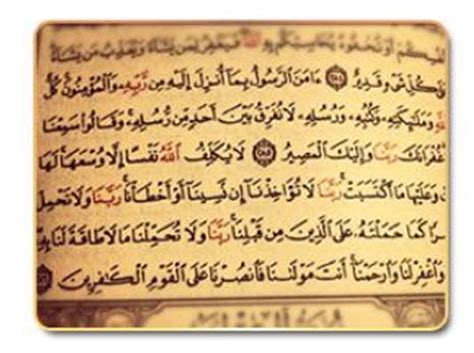 أَنفُسِكُمْ أَوْ تُخْفُوهُ يُحَاسِبْكُم بِهِ اللَّهُ فَيَغْفِرُ لِمَن يَشَاءُ وَيُعَذِّبُ مَن يَشَاءُ
كُلِّ شَيْءٍ قَدِيرٌ ﴿٢٨٤﴾ ءَامَنَ الرَّسُولُ بِمَا أُنزِلَ إِلَيْهِ مِن رَّبِّهِ وَالْمُؤْمِنُونَ كُلٌّ
وَمَلَٰئِكَتِهِ وَكُتُبِهِ وَرُسُلِهِ لَا نُفَرِّقُ بَيْنَ أَحَدٍ مِّن رُّسُلِهِ وَقَالُوا سَمِعْنَا
غُفْرَانَكَ رَبَّنَا وَإِلَيْكَ الْمَصِيرُ ﴿٢٨٥﴾ لَا يُكَلِّفُ اللَّهُ نَفْسًا إِلَّا وُسْعَهَا لَهَا
وَعَلَيْهَا مَا اكْتَسَبَتْ رَبَّنَا لَا تُؤَاخِذْنَا إِن نَّسِينَا أَوْ أَخْطَأْنَا رَبَّنَا وَلَا تَحْمِلْ
كَمَا حَمَلْتَهُ عَلَى الَّذِينَ مِن قَبْلِنَا رَبَّنَا وَلَا تُحَمِّلْنَا مَا لَا طَاقَةَ لَنَا بِهِ
وَاغْفِرْ لَنَا وَارْحَمْنَا أَنتَ مَوْلَىٰنَا فَانصُرْنَا عَلَى الْقَوْمِ الْكَٰفِرِينَ